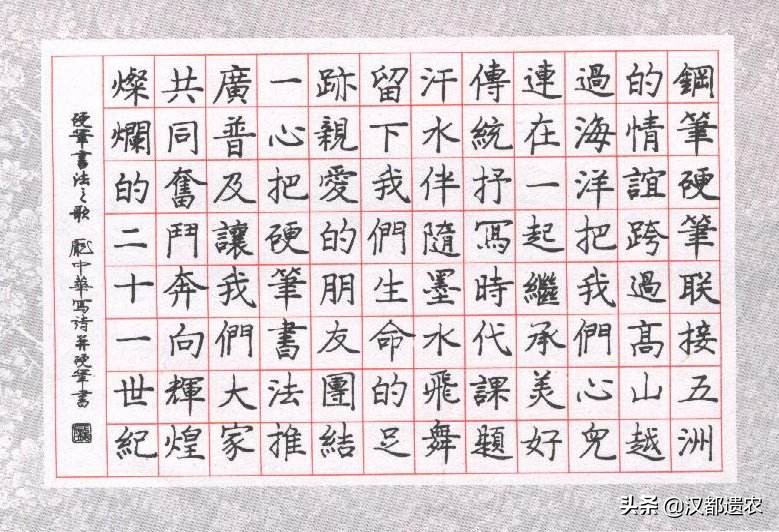 鋼筆硬筆联接五洲
的情誼跨過高山越
過海洋把我們心兒
連在一起繼承美好
傳統抒寫時代課題
汗水伴隨墨水飛舞
留下我們生命的足
跡親愛的朋友團結
一心把硬筆書法推
廣普及讓我們大家
共同奮鬥奔向輝煌
燦爛的二十一世紀
硬筆書法之歌 龐中華寫诗并硬筆書
头条 @汉都遗农